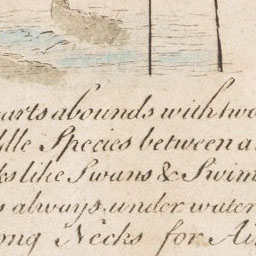 arts abounds with two
ddle Species between a
ks like Swans & Swim
s always under water
ong Necks for Ai